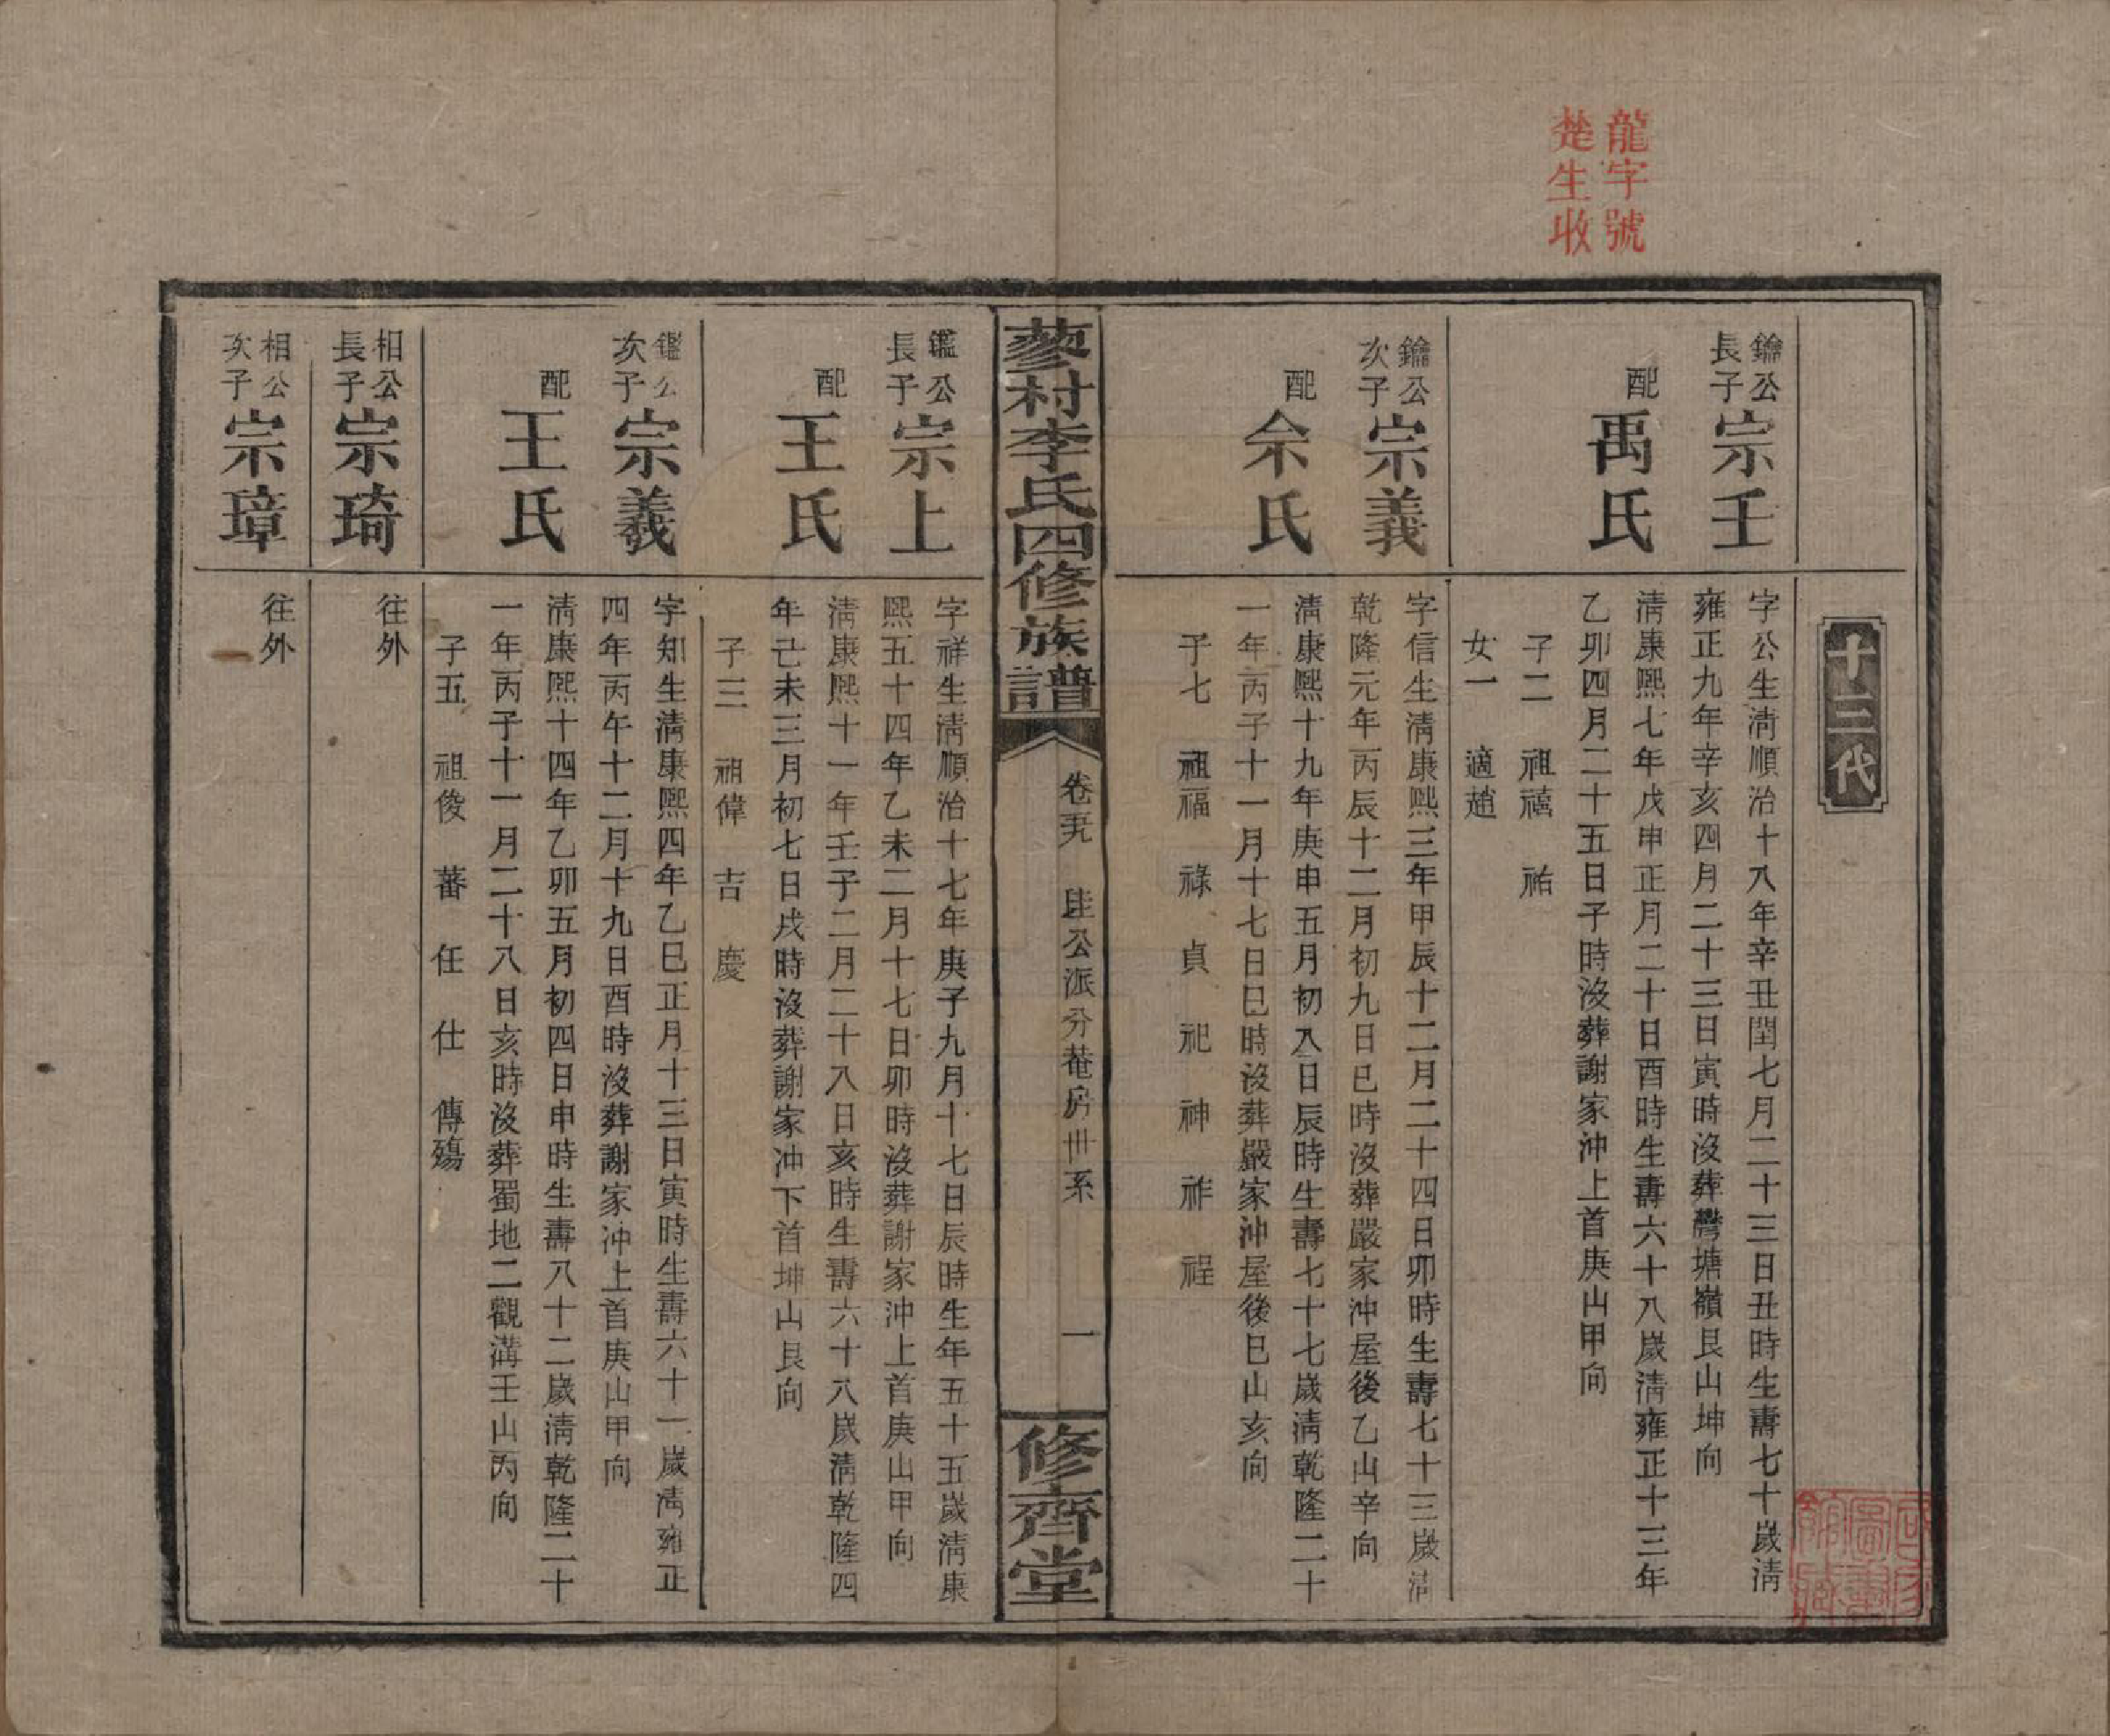 龍字號
楚生收
十三代
鑰公
長子
宗壬
字公生淸順治十八年辛丑閏七月二十三日丑時生壽七十歲淸
雍正九年辛亥四月二十三日寅時沒葬灣塘嶺艮山坤向
配
禹氏
淸康熙七年戊申正月二十日酉時生壽六十八歲淸雍正十三年
乙卯四月二十五日子時沒葬謝家沖上首庚山甲向
子二　祖禧　祐
女一　適趙
鑰公
次子
宗義
字信生淸康熙三年甲辰十二月二十四日卯時生壽七十三歲淸
乾隆元年丙辰十二月初九日巳時沒葬嚴家沖屋後乙山辛向
配
余氏
淸康熙十九年庚申五月初八日辰時生壽七十七歲淸乾隆二十
一年丙子十一月十七日巳時沒葬嚴家沖屋後巳山亥向
子七　祖福　祿　貞　祀　神　祚　祖
蓼村李氏四修族譜
卷五九　珪公派分菴房世系　一
修齊堂
鑑公
長子
宗上
字祥生淸順治十七年庚子九月十七日辰時生年五十五歲淸康
熙五十四年乙未二月十七日卯時沒葬謝家沖上首庚山甲向
配
王氏
淸康熙十一年壬子二月二十八日亥時生壽六十八歲淸乾隆四
年己未三月初七日戌時沒葬謝家沖下首坤山艮向
子三　祖偉　吉　慶
鑑公
次子
宗羲
字知生淸康熙四年乙巳正月十三日寅時生壽六十一歲淸雍正
四年丙午十二月十九日酉時沒葬謝家沖上首庚山甲向
配
王氏
淸康熙十四年乙卯五月初四日申時生壽八十二歲淸乾隆二十
一年丙子十一月二十八日亥時沒葬蜀地二觀溝壬山丙向
子五　祖俊　蕃　任　仕　傳殤
相公
長子
宗琦
往外
相公
次子
宗璋
往外